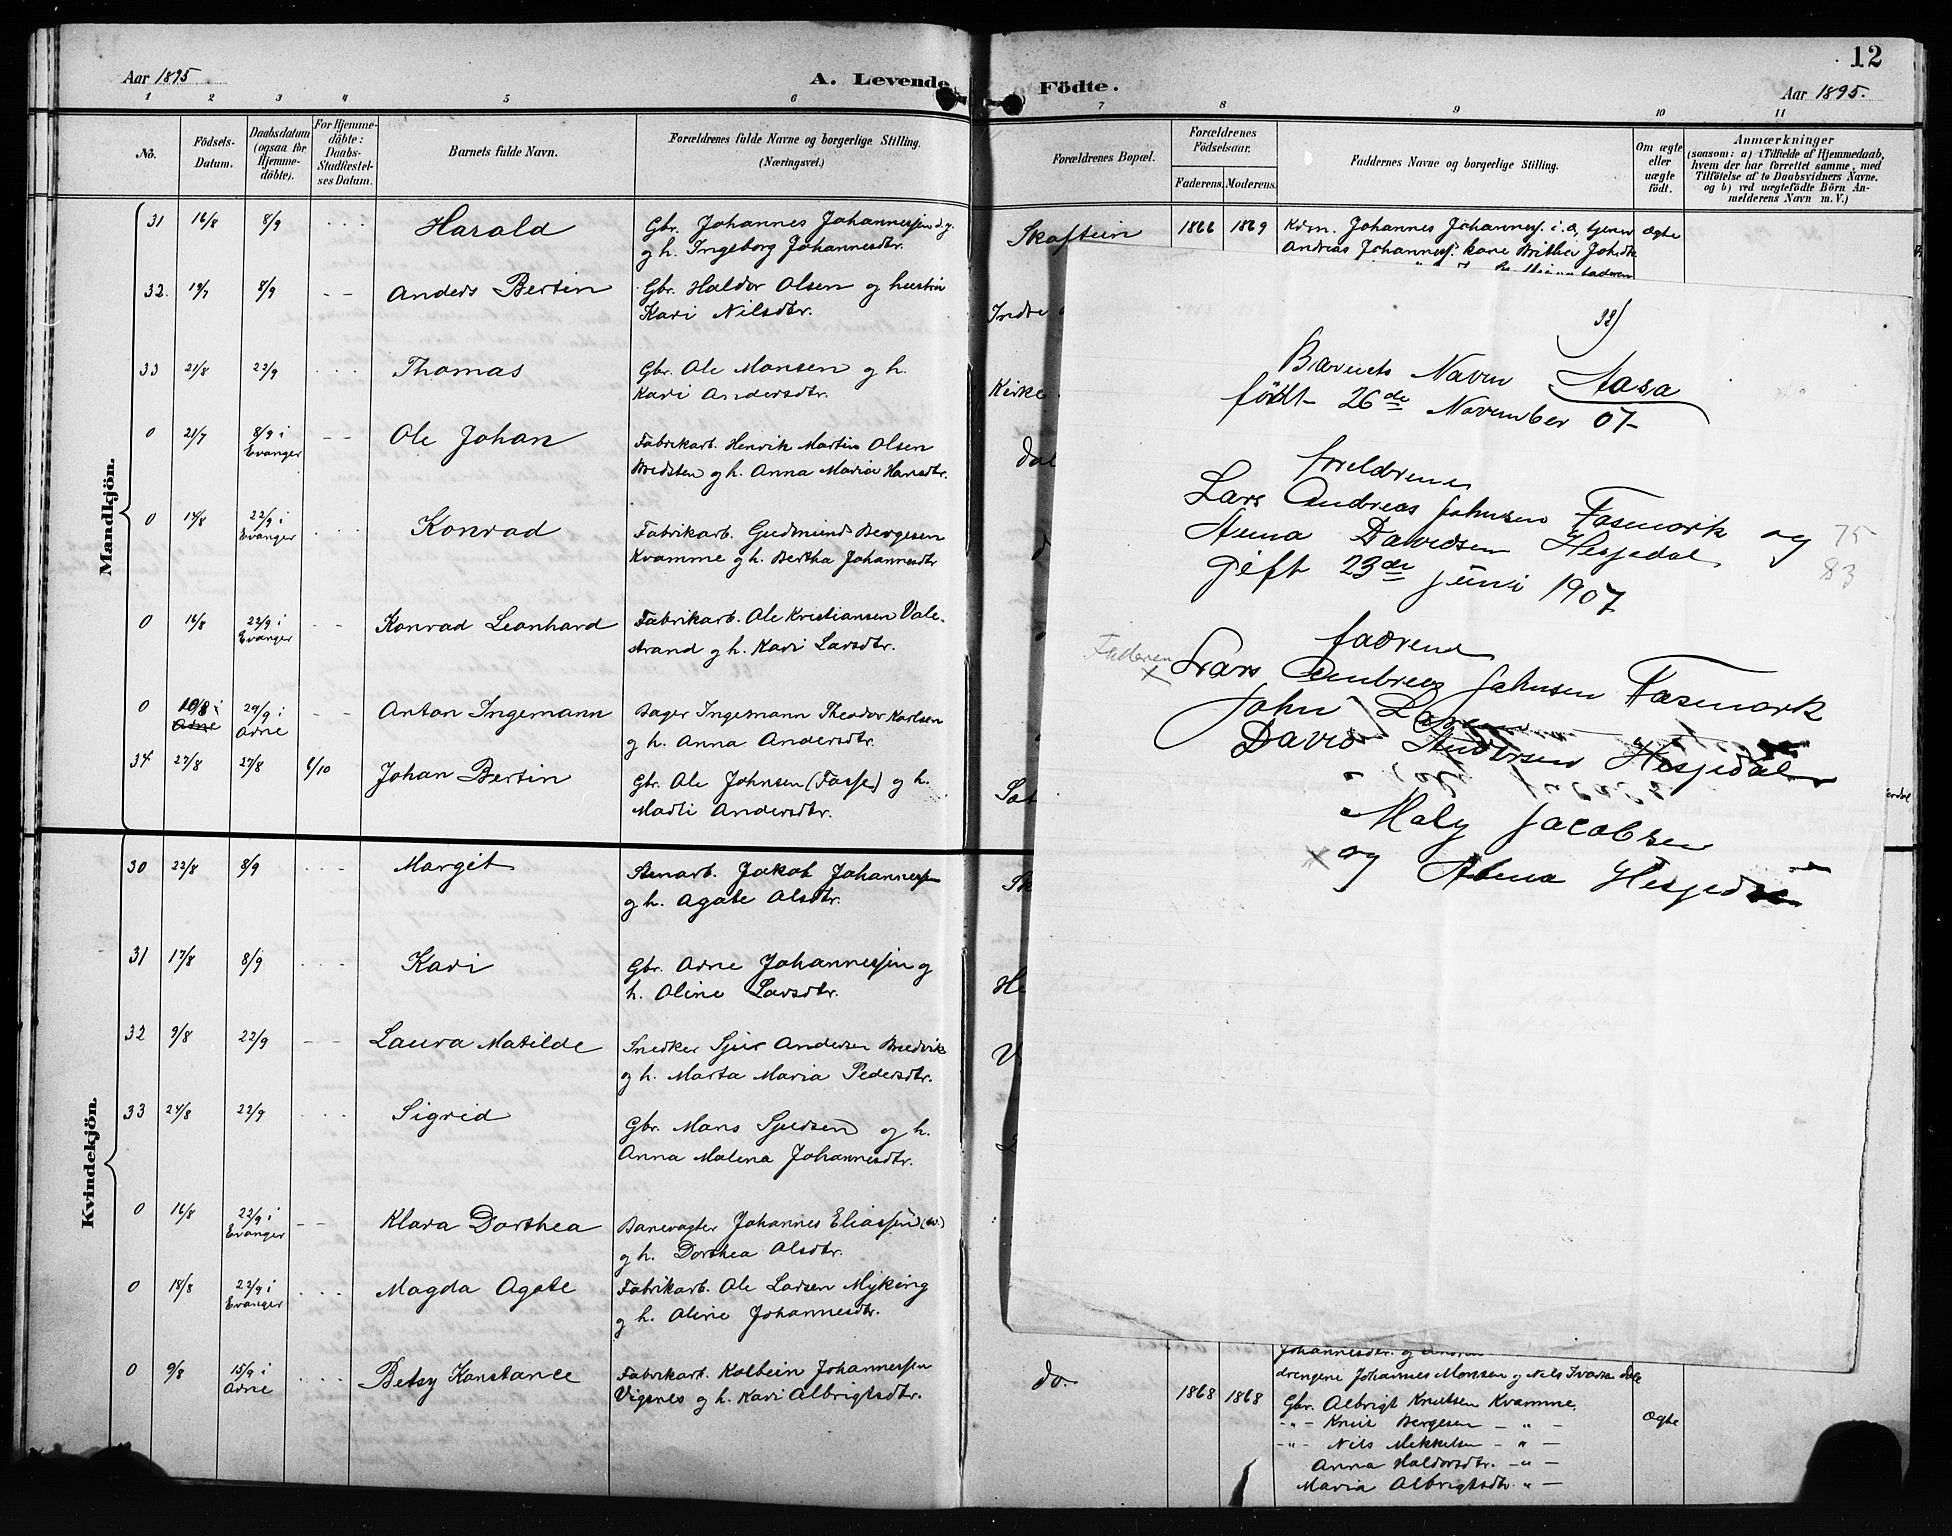 12
Aar 1895.
A. Levende Födte.
Aar 1895.
1 2 3 4 5 6 7 8 9 10 11
No.
Födsels-
Datum.
Daabsdatum
(ogsaa for
Hjemme-
döbte).
For Hjemme-
döbte:
Daabs-
Stadfæstel-
ses Datum.
Barnets fulde Navn.
Forældrenes fulde Navne og borgerlige Stilling.
(Næringsvei.)
Forældrenes Bopæl.
Forældrenes
Födselsaar.
Faderens. Moderens.
Faddernes Navne og borgerlige Stilling.
Om ægte
eller
uægte
födt.
Anmærkninger
(saasom: a) i Tilfælde af Hjemmedaab,
hvem der har forrettet samme, med
Tilföielse af to Daabsvidners Navne.
og b) ved uægtefödte Börn An-
melderens Navn m. V.)
Mandkjön.
31 16/8 8/9 Harald Gbr. Johannes Johannessen d.y.
g h. Ingeborg Johannesdtr.
Skaftein 1866 1869 Kdm. Johannes Johanness. i. d, tjener ægte
Andreas Johanness. kone Brithe Johsdtr
32. 19/7 8/9 Anders Bertin Gbr. Haldor Olsen og hustru
Kari Nilsdtr. Indre
33 21/8 22/9 Thomas Gbr. Ole Monsen g h.
Kari Andersdtr. Kirke
0 21/7 8/9 i
Evanger Ole Johan Fabrikarb. Henrik Martin Olsen
Bredsten g h. Anna Maria Hansdtr. Dal
0 14/8 22/9 i
Evanger Konrad Fabrikarb. Gudmund Bergesen
Kvamme g h. Bertha Johannesdtr
0 16/8 22/9 i
Evanger Konrad Leonhard Fabrikarb. Ole Kristiansen Vale-
strand g h. Kari Larsdtr.
0 10/8 i
Arne 29/9 i
Arne Anton Ingemann Bager Ingemann Theodor Karlsen
g h. Anna Andersdtr.
34 27/8 27/8 6/10 Johan Bertin Gbr. Ole Johnsen (Fasse) g h.
Madli Andersdtr.
Kvindekjön.
30 22/8 8/9 Margit Stenarb. Jakob Johannessen
g h. Agate Olsdtr. Sk
31 17/8 8/9 Kari Gbr. Arne Johannessen g
h. Oline Larsdtr. He
32 9/8 22/9 Laura Matilde Snedker Sjur Andersen Bredvik
g h. Marta Maria Pedersdtr. V
33 24/8 22/9 Sigrid Gbr. Mons Sjursen g h.
Anna Malena Johannesdtr.
0 16/8 22/9 i
Evanger Klara Dorthea Banevagter Johannes Eliassen
g h. Dorthea Olsdtr.
0 18/8 22/9 i
Evanger Magda Agate Fabrikarb. Ole Larsen Myking
g h. Oline Johannesdtr.
0 9/8 15/9 i
Arne Betsy Konstance Fabrikarb. Kolbein Johannessen
Vigsnes g h. Kari Albrigtsdtr. do. 1868 1868
Johannesdtr. og
drengene Johannes Monsen g Nils Ivarsen Dale
Gbr. Albrigt Knutsen Kvamme. Ægte
-"- Knut Bergesen - " -
-"- Nils Mikkelsen - " -
Anna Haldorsdtr. - " -
Maria Albrigtsdtr. " -
32)
Barnets Navn Aasa
født 26de November 07
foreldrene
Lars Andreas Johnsen Fasmark og 75
Anna Davidsen Hesjedal 83
gift 23de juni 1907
fadrene
Faderen x Lars Andreas Johnsen Fasmark
John Larsen
David Andersen Hesjedal
Maly Jacobsen
x og Anna Hesjedal